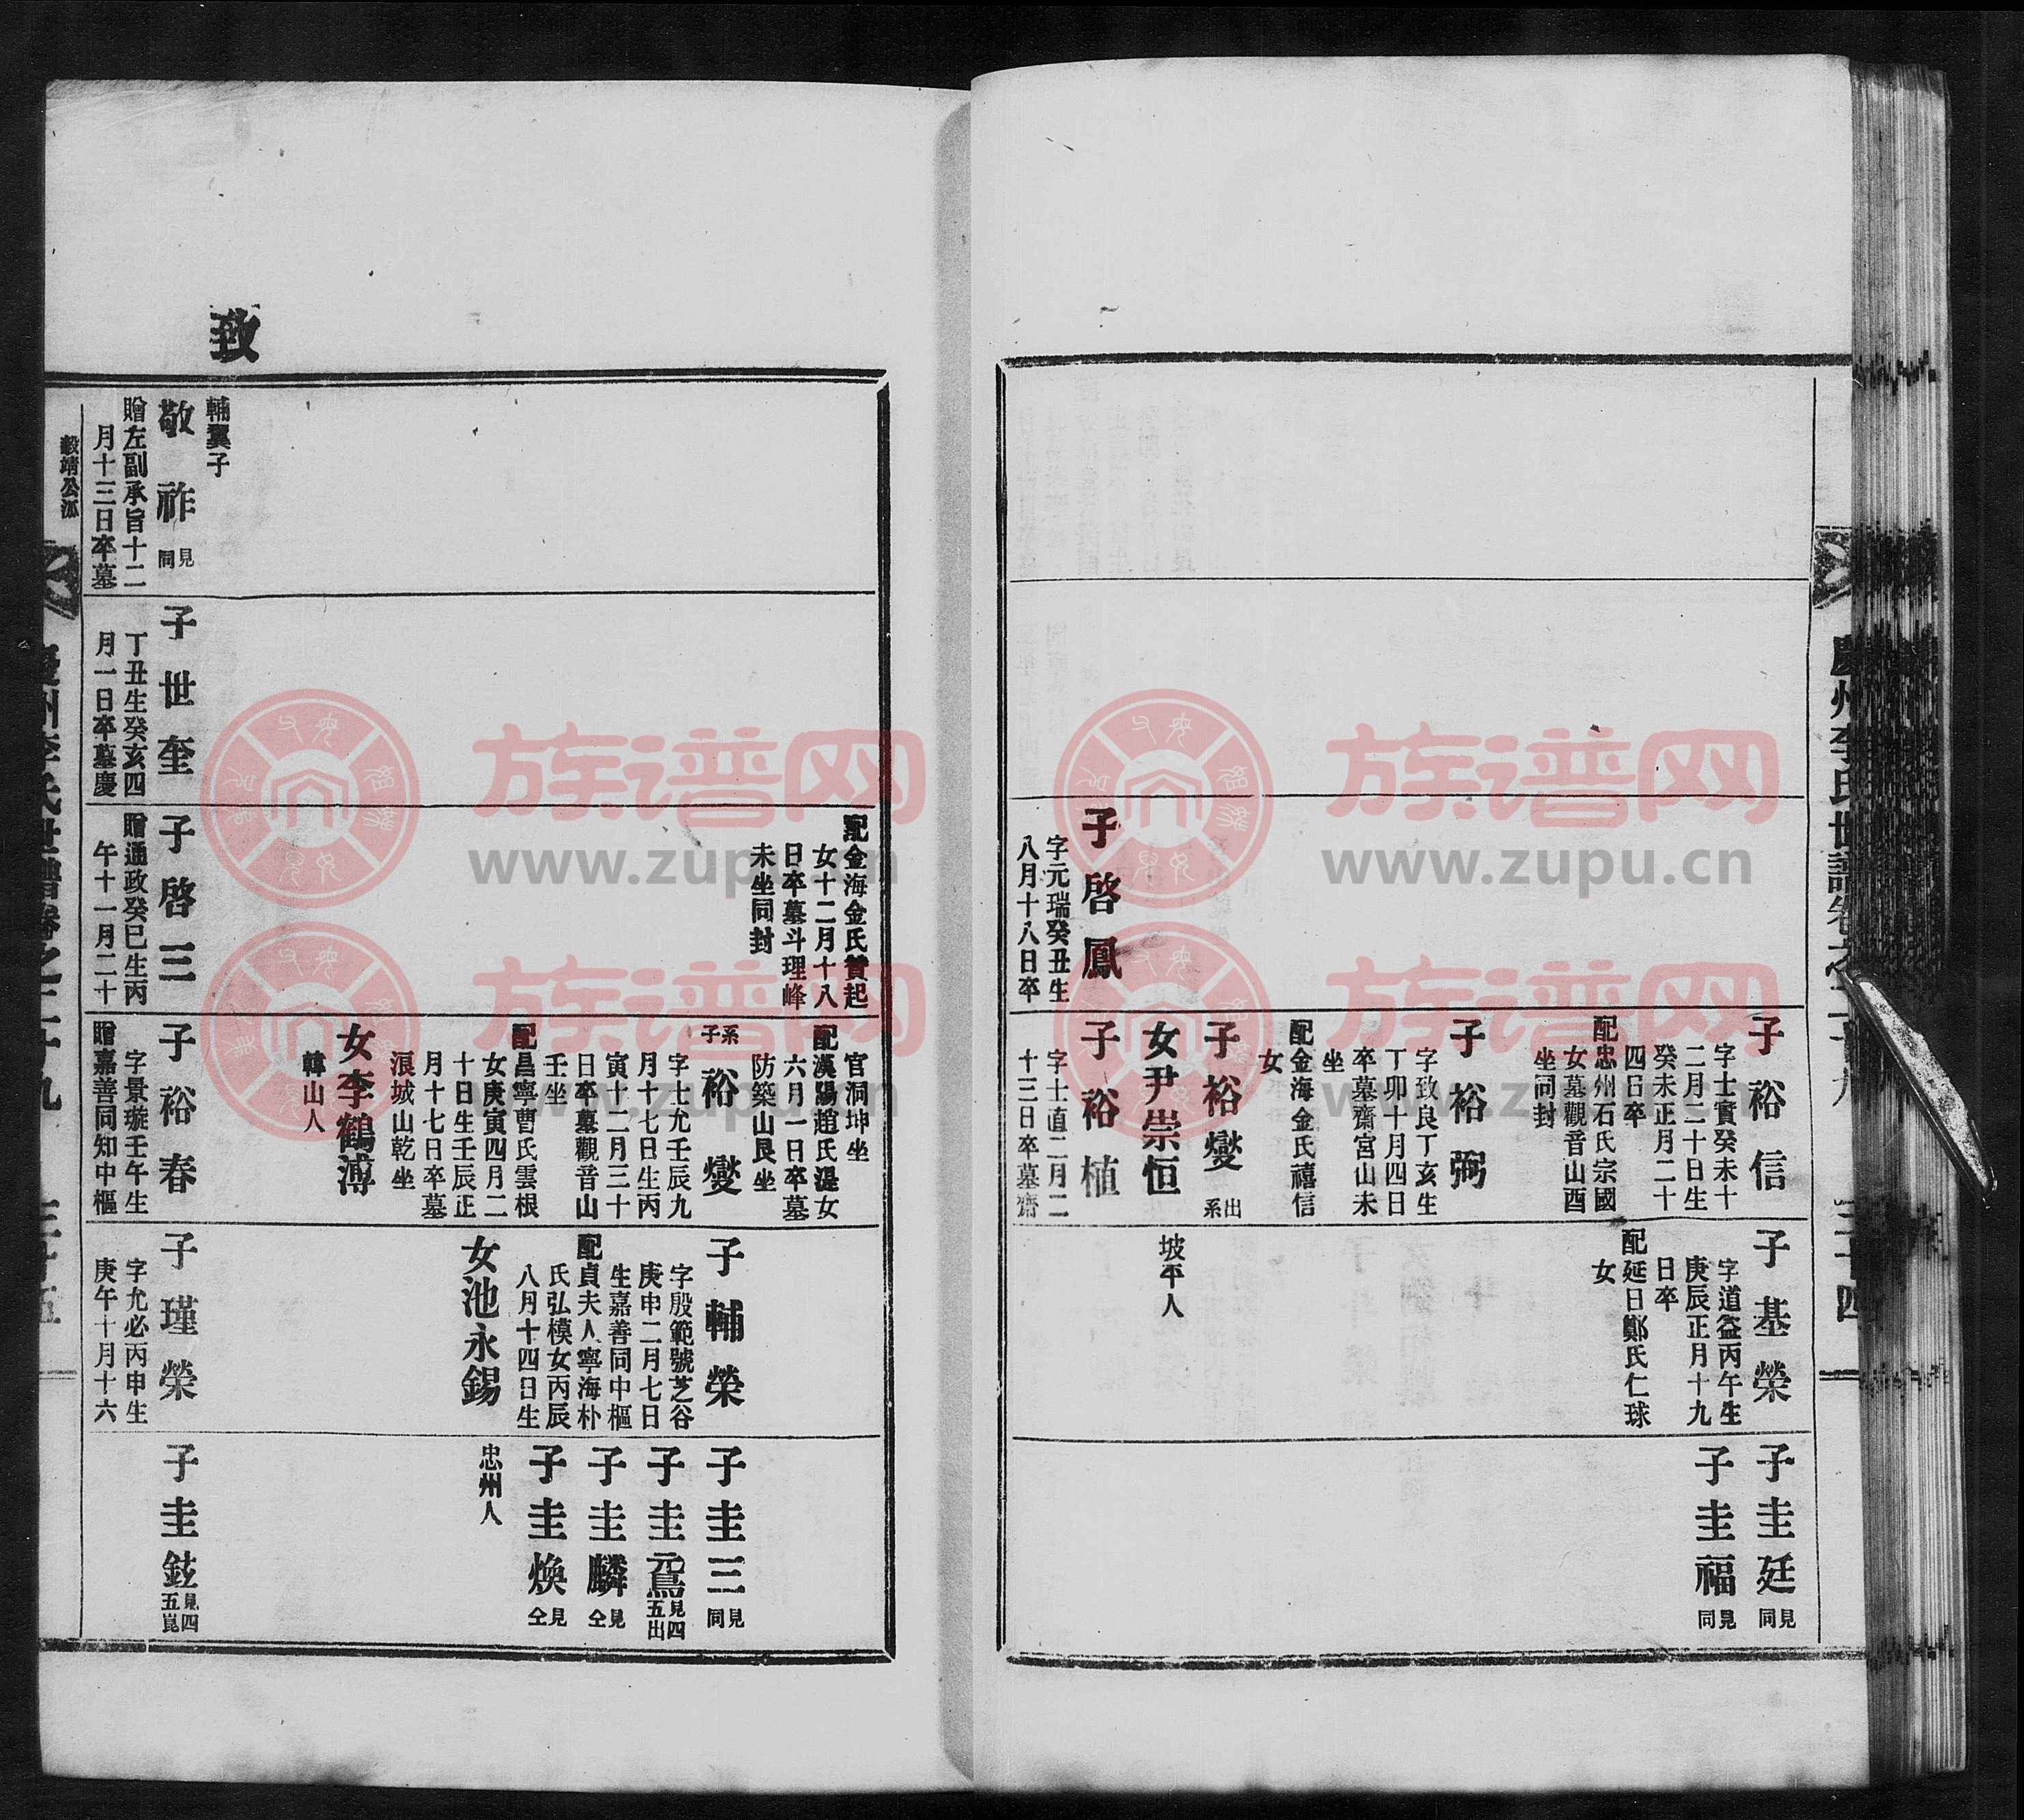 慶州李氏世譜卷之二十九
三十四
子啓鳳
字元瑞癸丑生
八月十八日卒
子裕信
字士實癸未十
二月二十日生
癸未正月二十
四日卒
配忠州石氏宗國
女墓觀音山酉
坐同封
子裕弼
字致良丁亥生
丁卯十月四日
卒墓齋宮山未
坐
配金海金氏禧信
女
子裕燮
出系
女尹崇恒
子裕植
字士直二月二
十三日卒墓齋
子基榮
字道益丙午生
庚辰正月十九
日卒
配延日鄭氏仁球
女
坡平人
子圭廷
見同
子圭福
見同
配金海金氏贊起
女十二月十八
日卒墓斗理峰
未坐同封
官洞坤坐
配漢陽趙氏湜女
六月一日卒墓
防築山艮坐
系子
裕燮
字士允壬辰九
月十七日生丙
寅十二月三十
日卒墓觀音山
壬坐
配昌寧曹氏雲根
女庚寅四月二
十日生壬辰正
月十七日卒墓
浪城山乾坐
女李鶴溥
韓山人
子輔榮
字殷範號芝谷
庚申二月七日
生嘉善同中樞
配貞夫人寧海朴
氏弘模女丙辰
八月十四日生
女池永錫
子圭三
見同
子圭鳶
見四
五出
子圭麟
見仝
子圭煥
見仝
忠州人
致
輔翼子
敬祚
見同
贈左副承旨十二
月十三日卒墓
子世奎
丁丑生癸亥四
月一日卒墓慶
子啓三
贈通政癸巳生丙
午十一月二十
子裕春
字景璇壬午生
贈嘉善同知中樞
子瑾榮
字允必丙申生
庚午十月十六
子圭鉉
見四
五崑
毅靖公派
慶州李氏世譜卷之二十九
三十五
族谱网
www.zupu.cn
族谱网
www.zupu.cn
族谱网
www.zupu.cn
族谱网
www.zupu.cn